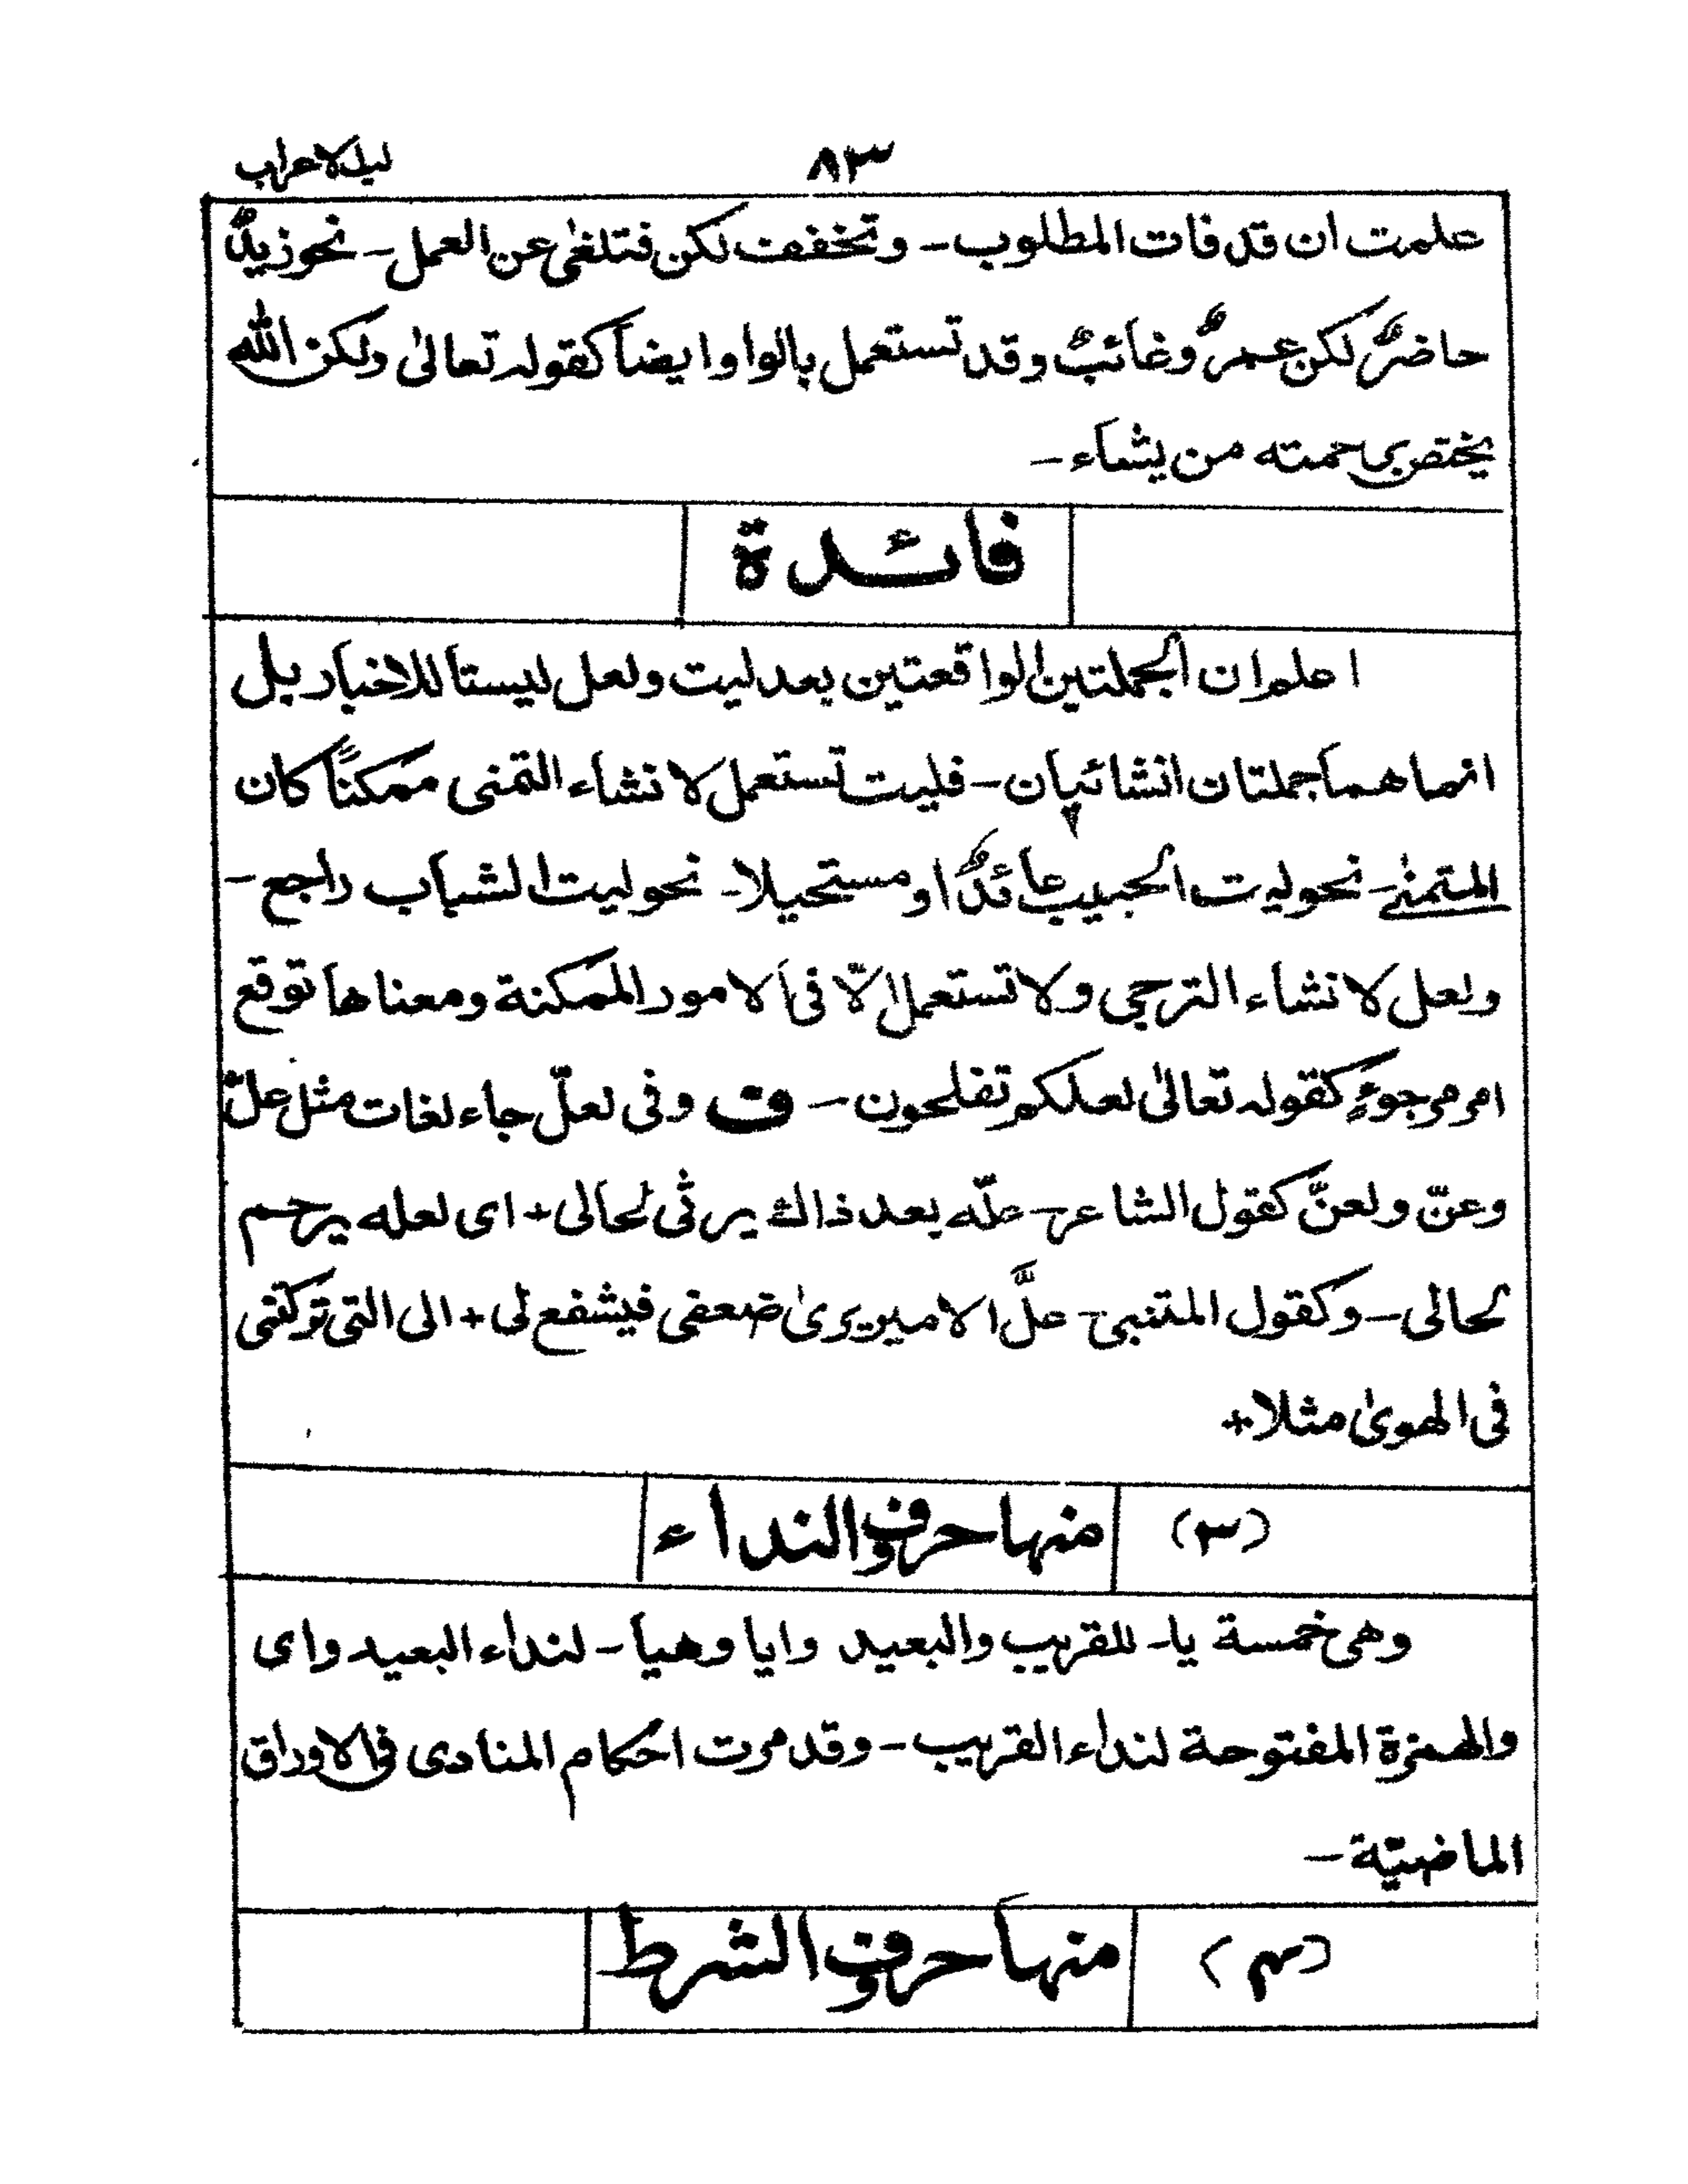 ٨٣
علمت ان قد فات المطلوب - وتخففت لكن فتلغى عن العمل - نحو زيدٌ
حاضرٌ لكن عمرٌو غائبٌ وقد تستعمل بالواو ايضاً كقوله تعالىٰ ولكن الله
يختص برحمته من يشاء -
فائدة
اعلم ان الجملتين الواقعتين بعد ليت ولعل ليستا للاخبار بل
انما هما جملتان انشائيان - فليت تستعمل لانشاء التمنى ممكنًا كان
المتمنىٰ - نحو ليت الحبيب عائدٌ او مستحيلا - نحو ليت الشباب راجع -
ولعل لانشاء الترجى ولا تستعمل الّا فى الامور الممكنة ومعناها توقع
امر مرجوءٍ كقوله تعالىٰ لعلكم تفلحون - ف وفى لعلّ جاء لغات مثل علّ
وعنّ ولعنَّ كقول الشاعر - علّه بعد ذاك يرثى لحالى + اى لعله يرحم
لحالى - وكقول المتنبى - علَّ الامير يرىٰ ضعفى فيشفع لى + الى التى تركتنى
فى الهوىٰ مثلا +
(٣) منها حروف النداء
وهى خمسة يا - للقريب والبعيد وايا وهيا - لنداء البعيد واى
والهمزة المفتوحة لنداء القريب - وقد مرت احكام المنادى فى الاوراق
الماضيّة -
(٤) منها حروف الشرط